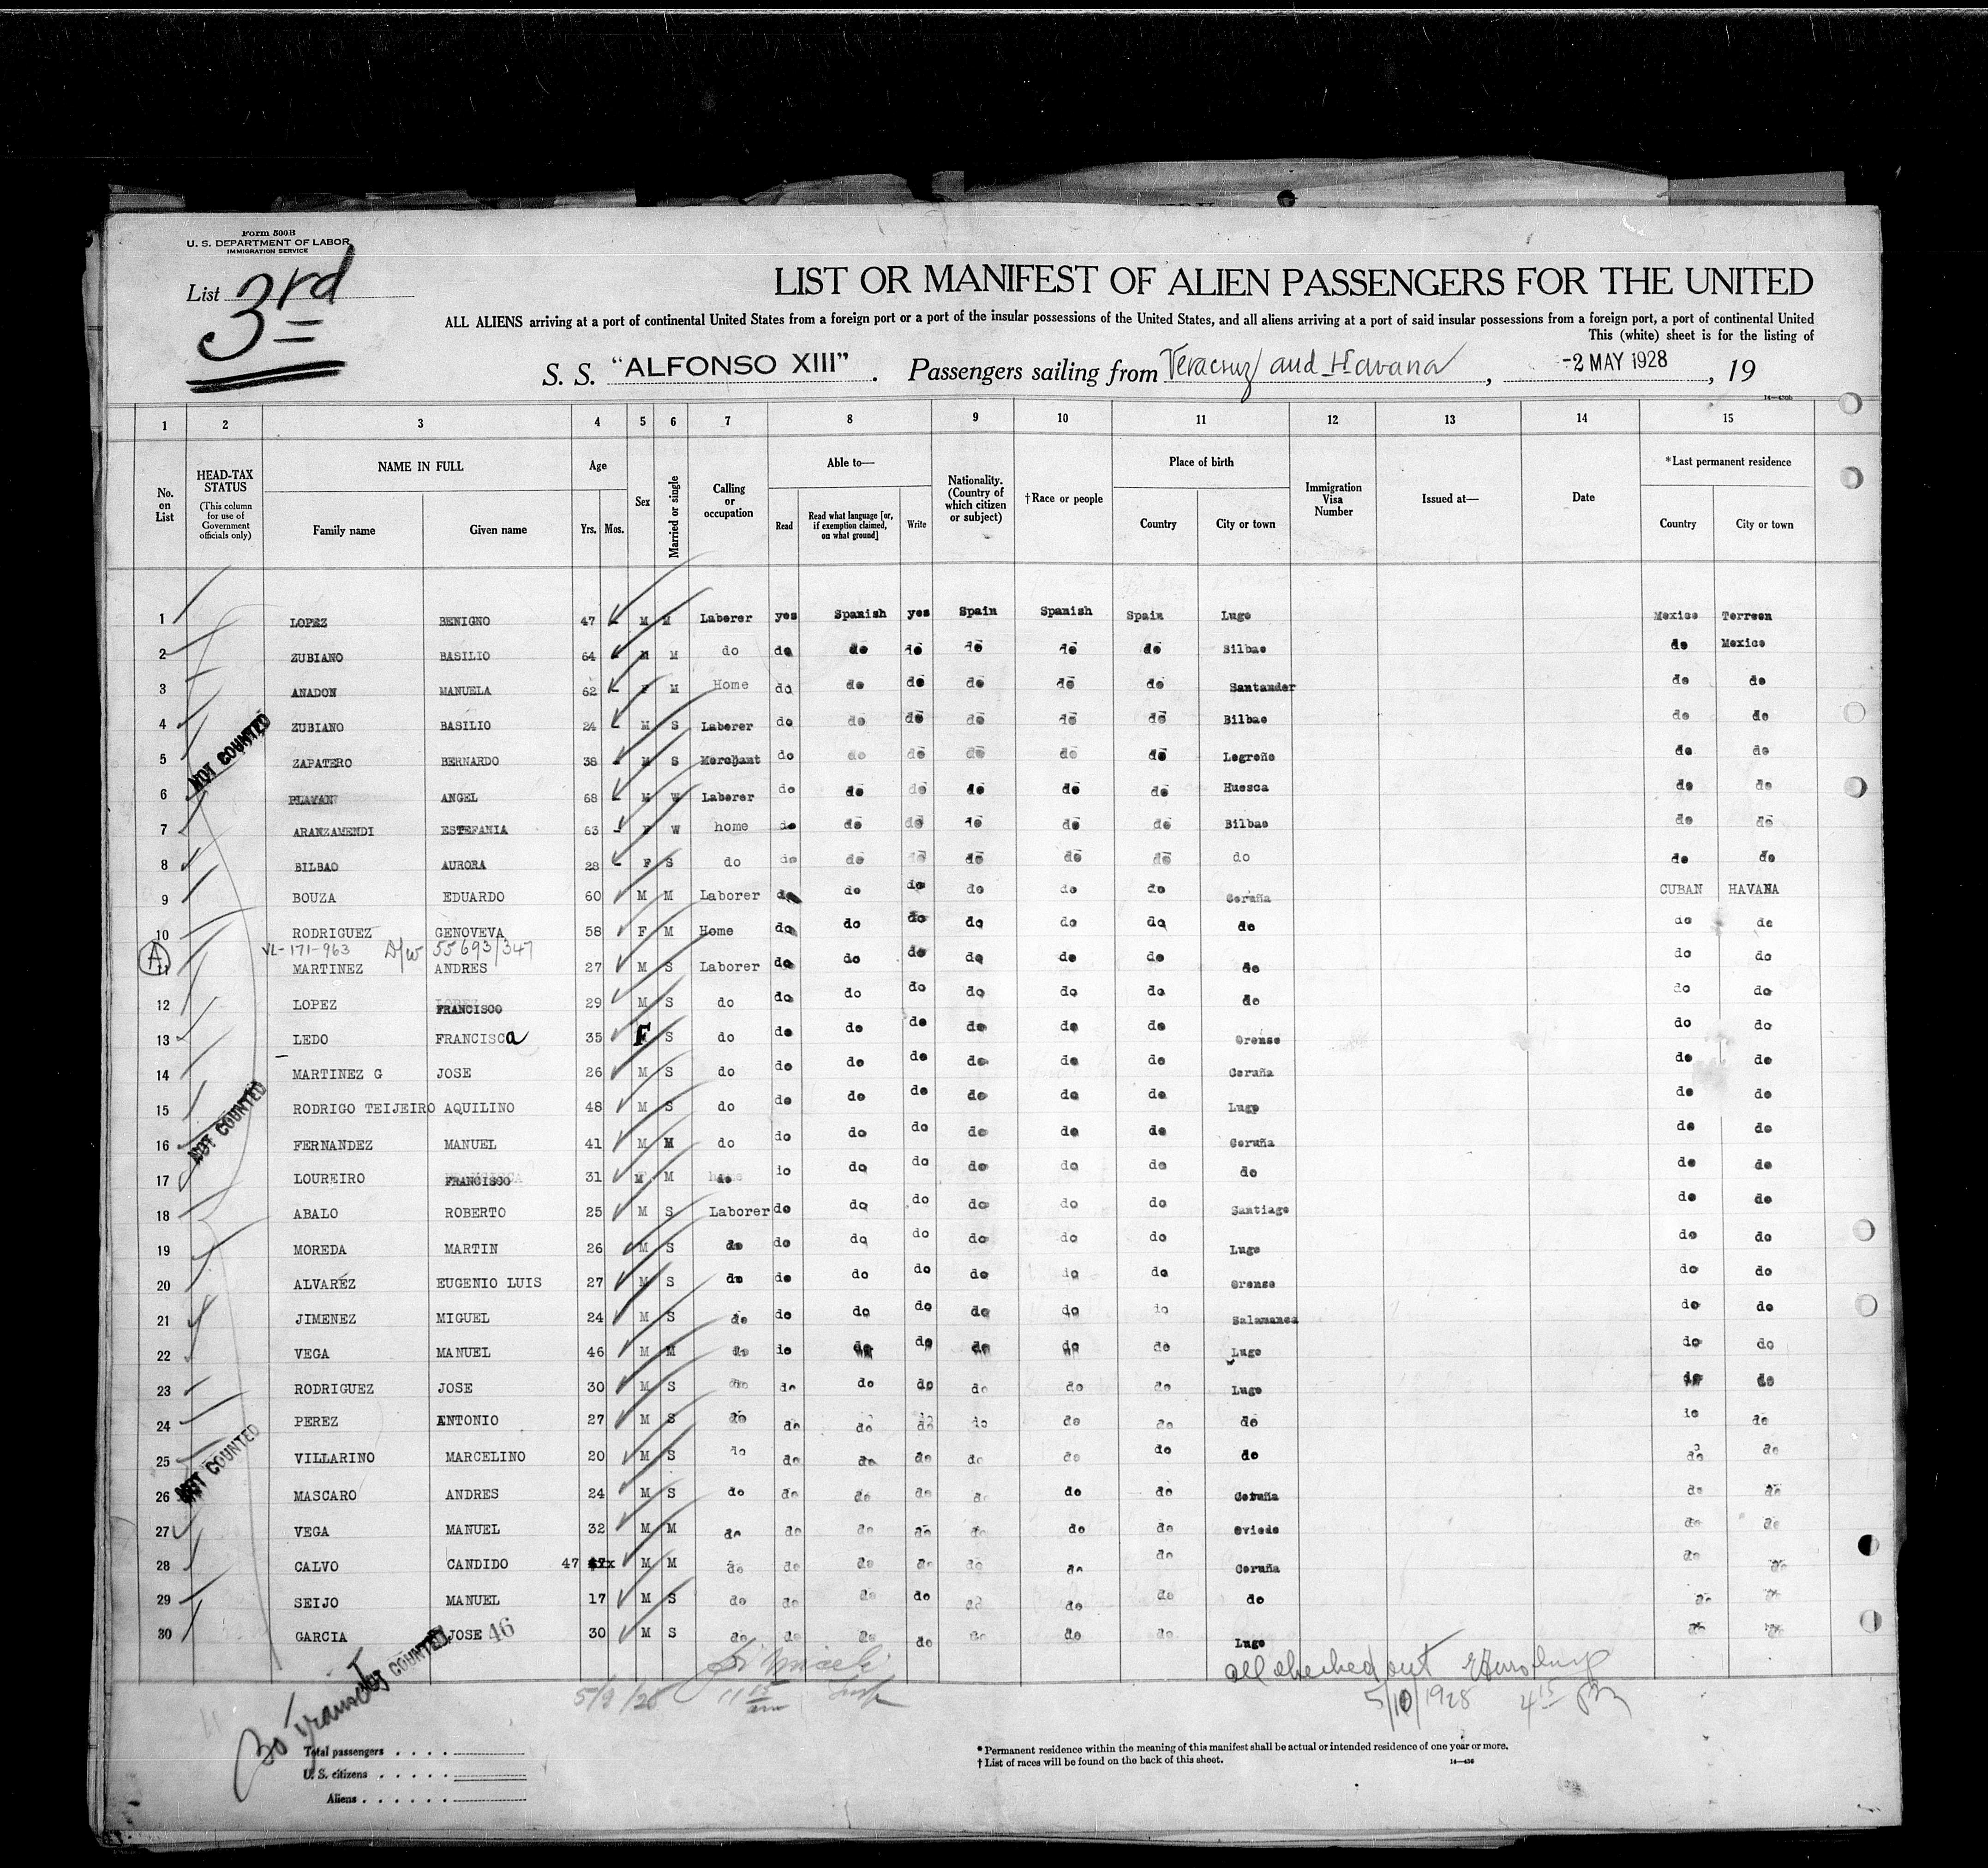 Form 500B
U. S. DEPARTMENT OF LABOR
IMMIGRATION SERVICE
List 3rd
LIST OR MANIFEST OF ALIEN PASSENGERS FOR THE UNITED
ALL ALIENS arriving at a port of continental United States from a foreign port or a port of the insular possessions of the United States, and all aliens arriving at a port of said insular possessions from a foreign port, a port of continental United
This (white) sheet is for the listing of
S. S. "ALFONSO XIII". Passengers sailing from Veracruz and Havana, -2 MAY 1928, 19
1 2 3 4 5 6 7 8 9 10 11 12 13 14 15
No. on List
HEAD-TAX STATUS (This column for use of Government officials only)
NAME IN FULL
Family name Given name
Age
Yrs. Mos.
Sex
Married or single
Calling or occupation
Able to—
Read Read what language [or, if exemption claimed, on what ground] Write
Nationality. (Country of which citizen or subject)
†Race or people
Place of birth
Country City or town
Immigration Visa Number
Issued at—
Date
*Last permanent residence
Country City or town
1 LOPEZ BENIGNO 47 M M Laborer yes Spanish yes Spain Spanish Spain Lugo Mexico Torreon
2 ZUBIANO BASILIO 64 M M do do do do do do do Bilbao do Mexico
3 ANADON MANUELA 62 F M Home do do do do do do Santander do do
4 ZUBIANO BASILIO 24 M S Laborer do do do do do do Bilbao do do
5 ZAPATERO BERNARDO 38 M S Merchant do do do do do do Logroño do do
6 PLAYAN ANGEL 68 M W Laborer do do do do do do Huesca do do
7 ARANZAMENDI ESTEFANIA 63 F W home do do do do do do Bilbao do do
8 BILBAO AURORA 28 F S do do do do do do do do do do
9 BOUZA EDUARDO 60 M M Laborer do do do do do do Coruña CUBAN HAVANA
10 RODRIGUEZ GENOVEVA 58 F M Home do do do do do do do do do
VL-171-963 D/W 55693/347
A
11 MARTINEZ ANDRES 27 M S Laborer do do do do do do do do do
12 LOPEZ FRANCISCO 29 M S do do do do do do do do do do
13 LEDO FRANCISCa 35 F S do do do do do do do Orense do do
14 MARTINEZ G JOSE 26 M S do do do do do do do Coruña do do
15 RODRIGO TEIJEIRO AQUILINO 48 M S do do do do do do do Lugo do do
16 FERNANDEZ MANUEL 41 M M do do do do do do do Coruña do do
17 LOUREIRO FRANCISCO 31 M M do do do do do do do do do do
18 ABALO ROBERTO 25 M S Laborer do do do do do do Santiago do do
19 MOREDA MARTIN 26 M S do do do do do do do Lugo do do
20 ALVAREZ EUGENIO LUIS 27 M S do do do do do do do Orense do do
21 JIMENEZ MIGUEL 24 M S do do do do do do do Salamanca do do
22 VEGA MANUEL 46 M M do do do do do do do Lugo do do
23 RODRIGUEZ JOSE 30 M S do do do do do do do Lugo do do
24 PEREZ ANTONIO 27 M S do do do do do do do do do do
25 VILLARINO MARCELINO 20 M S do do do do do do do do do do
26 MASCARO ANDRES 24 M S do do do do do do do Coruña do do
27 VEGA MANUEL 32 M M do do do do do do do Oviedo do do
28 CALVO CANDIDO 47 M M do do do do do do do Coruña do do
29 SEIJO MANUEL 17 M S do do do do do do do do do do
30 GARCIA JOSE 46 30 M S do do do do do do do Lugo do do
NOT COUNTED
NOT COUNTED
NOT COUNTED
NOT COUNTED
all checked out
5/9/28 11 15 am
5/10/1928 4 15 PM
30 Transit
Total passengers
U. S. citizens
Aliens
* Permanent residence within the meaning of this manifest shall be actual or intended residence of one year or more.
† List of races will be found on the back of this sheet.
14—436